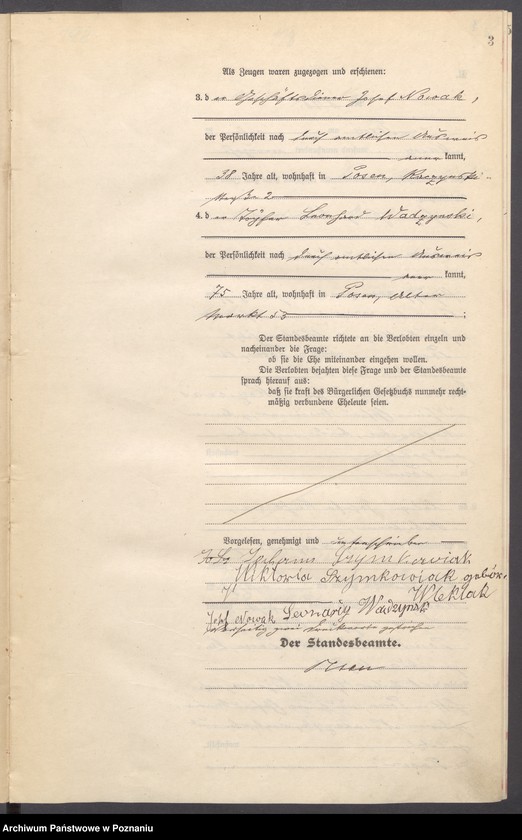 3
Als Zeugen waren zugezogen und erschienen:
3. d er Geschäftsdiener Josef Nowak,
der Persönlichkeit nach durch amtlichen Ausweis
aner kannt,
38 Jahre alt, wohnhaft in Posen,
straße 2
4. d er Töpfer Leonhard Wadzynski,
der Persönlichkeit nach durch amtlichen Ausweis
aner kannt,
75 Jahre alt, wohnhaft in Posen, Alter
Markt ;
Der Standesbeamte richtete an die Verlobten einzeln und
nacheinander die Frage:
ob sie die Ehe miteinander eingehen wollen.
Die Verlobten bejahten diese Frage und der Standesbeamte
sprach hierauf aus:
daß sie kraft des Bürgerlichen Gesetzbuchs nunmehr recht-
mäßig verbundene Eheleute seien.
Vorgelesen, genehmigt und unterschrieben
Johann Szymkowiak
Wiktoria Szymkowiak gebór.
Wleklak
Josef Nowak Leonardy Wadzynski
Der Standesbeamte.
Archiwum Państwowe w Poznaniu